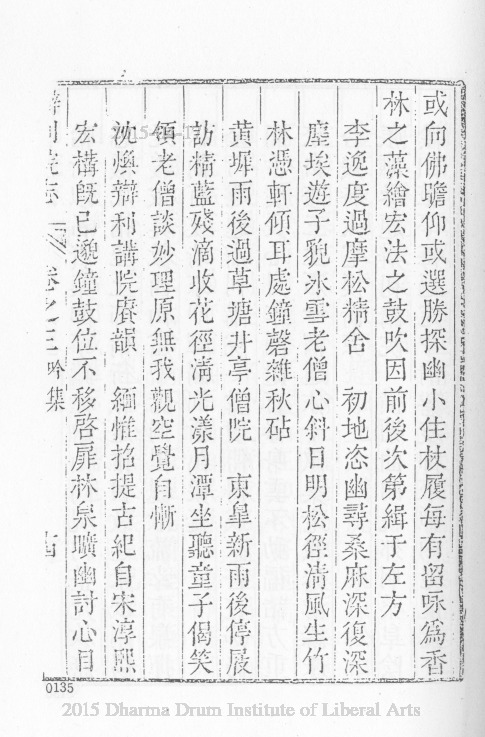 或向佛瞻仰或選勝探幽小住杖履每有留咏為香
林之藻繪宏法之鼓吹因前後次第緝于左方
李逸度過摩松精舍　初地恣幽尋桑麻深復深
塵埃遊子貌氷雪老僧心斜日明松徑清風生竹
林憑軒傾耳處鐘磬雜秋砧
黃墀雨後過草塘井亭僧院　東皐新雨後停屐
訪精藍殘滴收花徑淸光漾月潭坐聽童子偈笑
領老僧談妙理原無我觀空覺自慚
沈燠辯利講院賡韻　緬惟招提古紀自宋淳熙
宏構旣已邈鐘鼓位不移啓扉林泉曠幽討心目
辯利院志　卷之三吟集　十四
0135
2015 Dharma Drum Institute of Liberal Arts